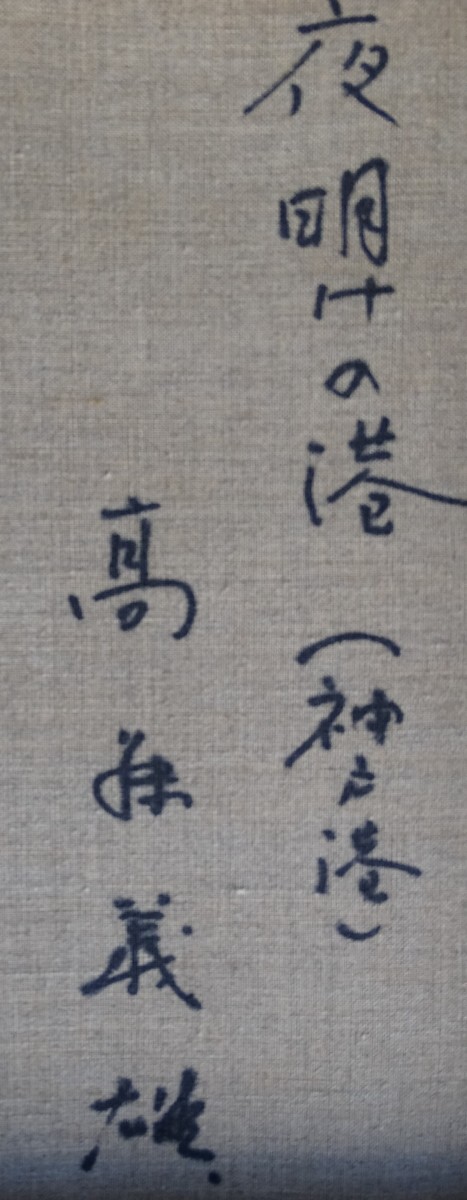 夜明けの港(神戸港)
高 義雄